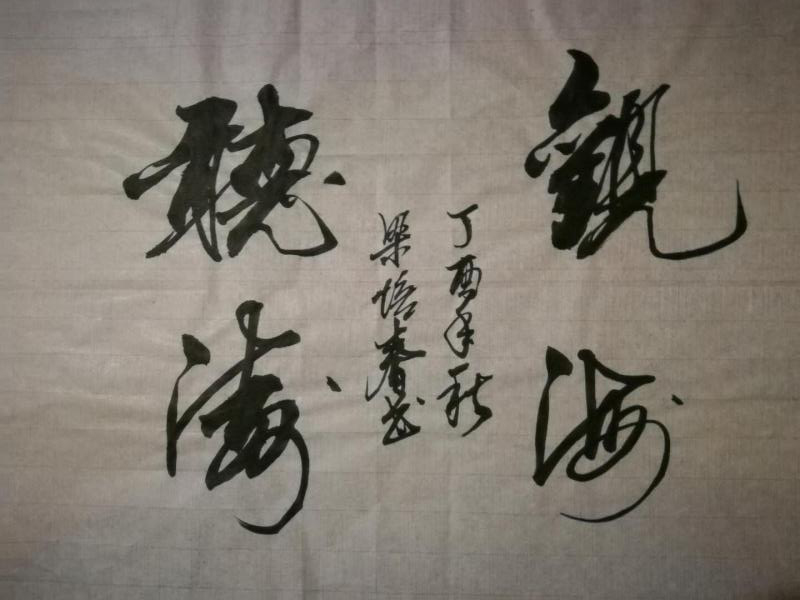 觀海
聽濤
丁酉年秋
梁培春书